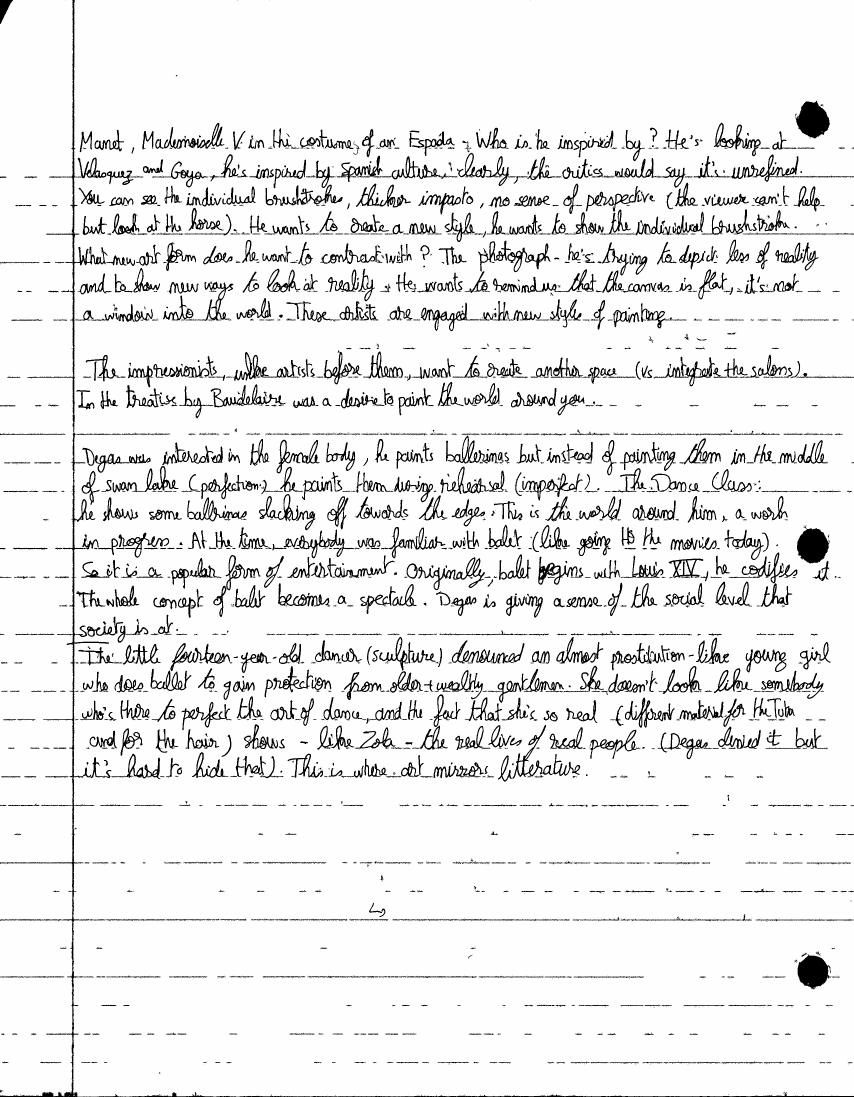 Manet, Mademoiselle V. in the costume of an Espada - Who is he inspired by? He's looking at
Velasquez and Goya, he's inspired by Spanish culture, clearly, the critics would say it's unrefined.
You can see the individual brushstrokes, thicker impasto, no sense of perspective (the viewer can't help
but look at the horse). He wants to create a new style, he wants to show the individual brushstroke.
What new art form does he want to contrast with? The photograph - he's trying to depict less of reality
and to show new ways to look at reality. He wants to remind us that the canvas is flat, it's not
a window into the world. These artists are engaged with new styles of painting.
The impressionists, unlike artists before them, want to create another space (vs integrate the salons).
In the treatise by Baudelaire was a desire to paint the world around you.
Degas was interested in the female body, he paints ballerinas but instead of painting them in the middle
of swan lake (perfection) he paints them during rehearsal (imperfect). The Dance Class:
he shows some ballrinas slacking off towards the edges. This is the world around him, a work
in progress. At the time, everybody was familiar with balet (like going to the movies today).
So it is a popular form of entertainment. Originally, balet begins with Louis XIV, he codifies it.
The whole concept of balet becomes a spectacle. Degas is giving a sense of the social level that
society is at.
The little fourteen-year-old dancer (sculpture) denounced an almost prostitution-like young girl
who does ballet to gain protection from older + wealthy gentlemen. She doesn't look like somebody
who's there to perfect the art of dance, and the fact that she's so real (different material for the Tutu
and for the hair) shows - like Zola - the real lives of real people. (Degas denied it but
it's hard to hide that). This is where art mirrors litterature.